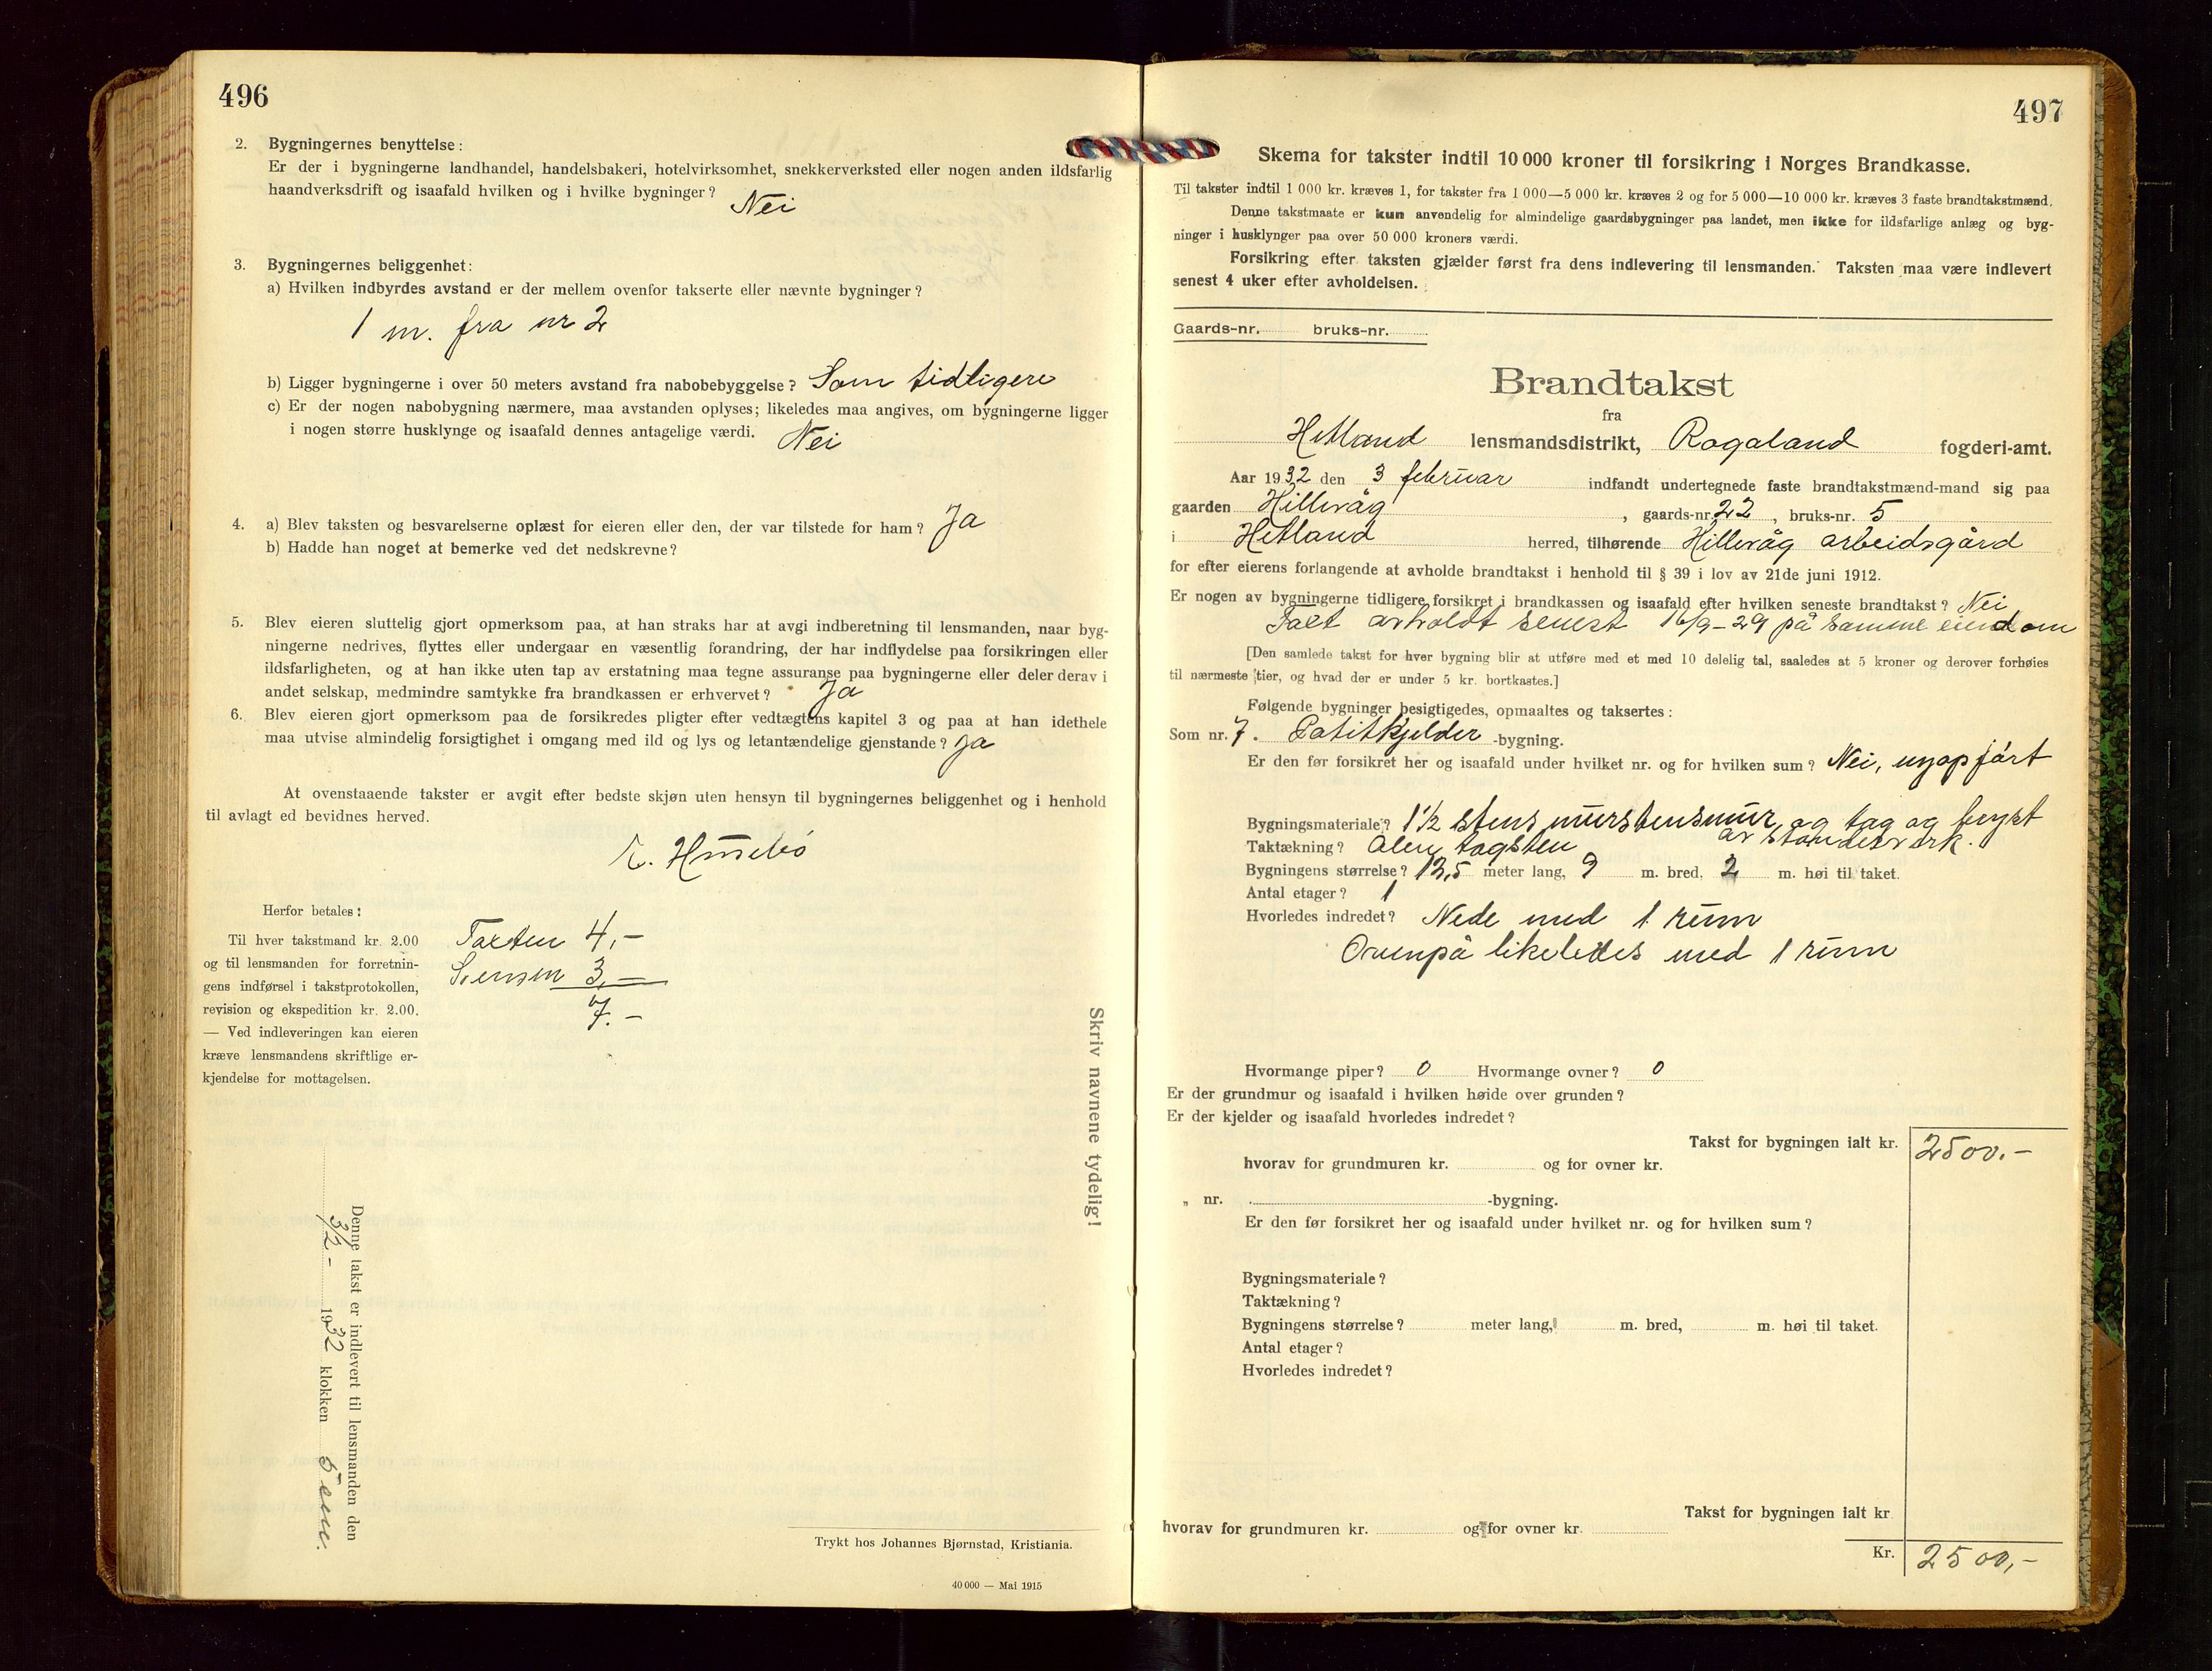 496
2. Bygningernes benyttelse:
Er der i bygningerne landhandel, handelsbakeri, hotelvirksomhet, snekkerverksted eller nogen anden ildsfarlig
haandverksdrift og isaafald hvilken og i hvilke bygninger? Nei
3. Bygningernes beliggenhet:
a) Hvilken indbyrdes avstand er der mellem ovenfor takserte eller nævnte bygninger?
1 m. fra nr 2
b) Ligger bygningerne i over 50 meters avstand fra nabobebyggelse? Som tidligere
c) Er der nogen nabobygning nærmere, maa avstanden oplyses; likeledes maa angives, om bygningerne ligger
i nogen større husklynge og isaafald dennes antagelige værdi. Nei
4. a) Blev taksten og besvarelserne oplæst for eieren eller den, der var tilstede for ham? Ja
b) Hadde han noget at bemerke ved det nedskrevne?
5. Blev eieren sluttelig gjort opmerksom paa, at han straks har at avgi indberetning til lensmanden, naar byg-
ningerne nedrives, flyttes eller undergaar en væsentlig forandring, der har indflydelse paa forsikringen eller
ildsfarligheten, og at han ikke uten tap av erstatning maa tegne assuranse paa bygningerne eller deler derav i
andet selskap, medmindre samtykke fra brandkassen er erhvervet? Ja
6. Blev eieren gjort opmerksom paa de forsikredes pligter efter vedtægtens kapitel 3 og paa at han idethele
maa utvise almindelig forsigtighet i omgang med ild og lys og letantændelige gjenstande? Ja
At ovenstaaende takster er avgit efter bedste skjøn uten hensyn til bygningernes beliggenhet og i henhold
til avlagt ed bevidnes herved.
Husebø
Herfor betales:
Til hver takstmand kr. 2.00
og til lensmanden for forretnin-
gens indførsel i takstprotokollen,
revision og ekspedition kr. 2.00.
— Ved indleveringen kan eieren
kræve lensmandens skriftlige er-
kjendelse for mottagelsen.
Taxten 4,-
3,-
7.-
Skriv navnene tydelig!
Denne takst er indlevert til lensmanden den
3/2- 1932 klokken 5 em.
Trykt hos Johannes Bjørnstad, Kristiania.
40 000 — Mai 1915
497
Skema for takster indtil 10 000 kroner til forsikring i Norges Brandkasse.
Til takster indtil 1 000 kr. kræves 1, for takster fra 1 000—5 000 kr. kræves 2 og for 5 000—10 000 kr. kræves 3 faste brandtakstmænd.
Denne takstmaate er kun anvendelig for almindelige gaardsbygninger paa landet, men ikke for ildsfarlige anlæg og byg-
ninger i husklynger paa over 50 000 kroners værdi.
Forsikring efter taksten gjælder først fra dens indlevering til lensmanden. Taksten maa være indlevert
senest 4 uker efter avholdelsen.
Gaards-nr. bruks-nr.
Brandtakst
fra
Hetland lensmandsdistrikt, Rogaland fogderi-amt.
Aar 1932 den 3 februar indfandt undertegnede faste brandtakstmænd-mand sig paa
gaarden Hillevåg, gaards-nr. 22, bruks-nr. 5
i Hetland herred, tilhørende Hillevåg arbeidsgård
for efter eierens forlangende at avholde brandtakst i henhold til § 39 i lov av 21de juni 1912.
Er nogen av bygningerne tidligere forsikret i brandkassen og isaafald efter hvilken seneste brandtakst? Nei
avholdt senest 16/9-29 på samme eiendom
[Den samlede takst for hver bygning blir at utføre med et med 10 delelig tal, saaledes at 5 kroner og derover forhøies
til nærmeste tier, og hvad der er under 5 kr. bortkastes.]
Følgende bygninger besigtigedes, opmaaltes og taksertes:
Som nr. 7. Potitkjelder -bygning.
Er den før forsikret her og isaafald under hvilket nr. og for hvilken sum? Nei, nyopført
Bygningsmateriale? 1½ stens murstensmur og tag og
av standerverk.
Taktækning? Alm tagsten
Bygningens størrelse? 13,5 meter lang, 9 m. bred, 2 m. høi til taket.
Antal etager? 1
Hvorledes indredet? Nede med 1 rum
Ovenpå likeledes med 1 rum
Hvormange piper? 0 Hvormange ovner? 0
Er der grundmur og isaafald i hvilken høide over grunden?
Er der kjelder og isaafald hvorledes indredet?
Takst for bygningen ialt kr. 2500.-
hvorav for grundmuren kr. og for ovner kr.
„ nr. -bygning.
Er den før forsikret her og isaafald under hvilket nr. og for hvilken sum?
Bygningsmateriale?
Taktækning?
Bygningens størrelse? meter lang, m. bred, m. høi til taket.
Antal etager?
Hvorledes indredet?
Takst for bygningen ialt kr
hvorav for grundmuren kr. og for ovner kr.
Kr. 2500,-